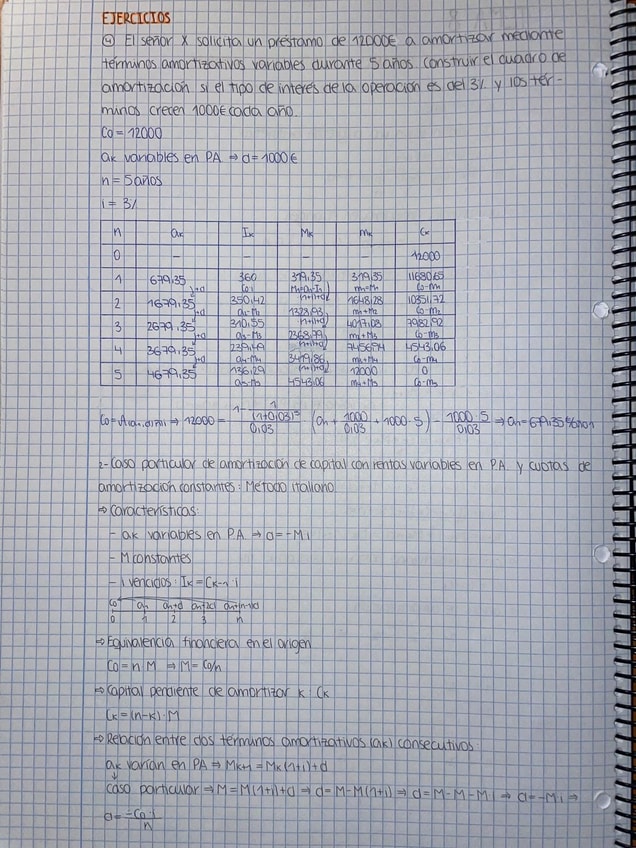 EJERCICIOS
④ El señor X solicita un préstamo de 12000€ a amortizar mediante
términos amortizativos variables durante 5 años. construir el cuadro de
amortización si el tipo de interés de la operación es del 3% y los tér-
minos crecen 1000€ cada año.
Co = 12000
ak variables en PA ⇒ d = 1000€
n = 5 años
i = 3%
n ak Ik Mk mk Ck
0 - - - 12000
1 679,35 360 319,35 319,35 11680,65
+d Co·i M1=a1-I1 m1=M1 Co-m1
2 1679,35 350,42 1328,93 1648,28 10351,72
+d a2-M2 m1+M2 Co-m2
3 2679,35 310,55 2368,79 4017,08 7982,92
+d a3-M3 m2+M3 Co-m3
4 3679,35 239,49 3419,86 7456,94 4543,06
+d Co-m4
5 4679,35 136,29 4543,06 12000 0
Co-m5
12000 = 1 - 1/(1+0,03)^5 / 0,03 (a1 + 1000/0,03 + 1000·5) - 1000·5/0,03 ⇒ a1 = 679,35
2- Caso particular de amortización de capital con rentas variables en P.A. y cuotas de
amortización constantes: Método italiano
⇒ Características:
- ak variables en PA ⇒ d = -Mi
- M constantes
- i vencidos: Ik = Ck-1·i
Co a1 a1+d a1+2d a1+(n-1)d
0 1 2 3 n
⇒ Equivalencia financiera en el origen
Co = n·M ⇒ M = Co/n
⇒ Capital pendiente de amortizar k: Ck
Ck = (n-k)·M
⇒ Relación entre dos términos amortizativos (ak) consecutivos:
ak varían en PA ⇒ Mk+1 = Mk(1+i)+d
caso particular ⇒ M = M(1+i)+d ⇒ d = M-M(1+i) ⇒ d = M-M-Mi ⇒ d = -Mi ⇒
d = -Co·i/n